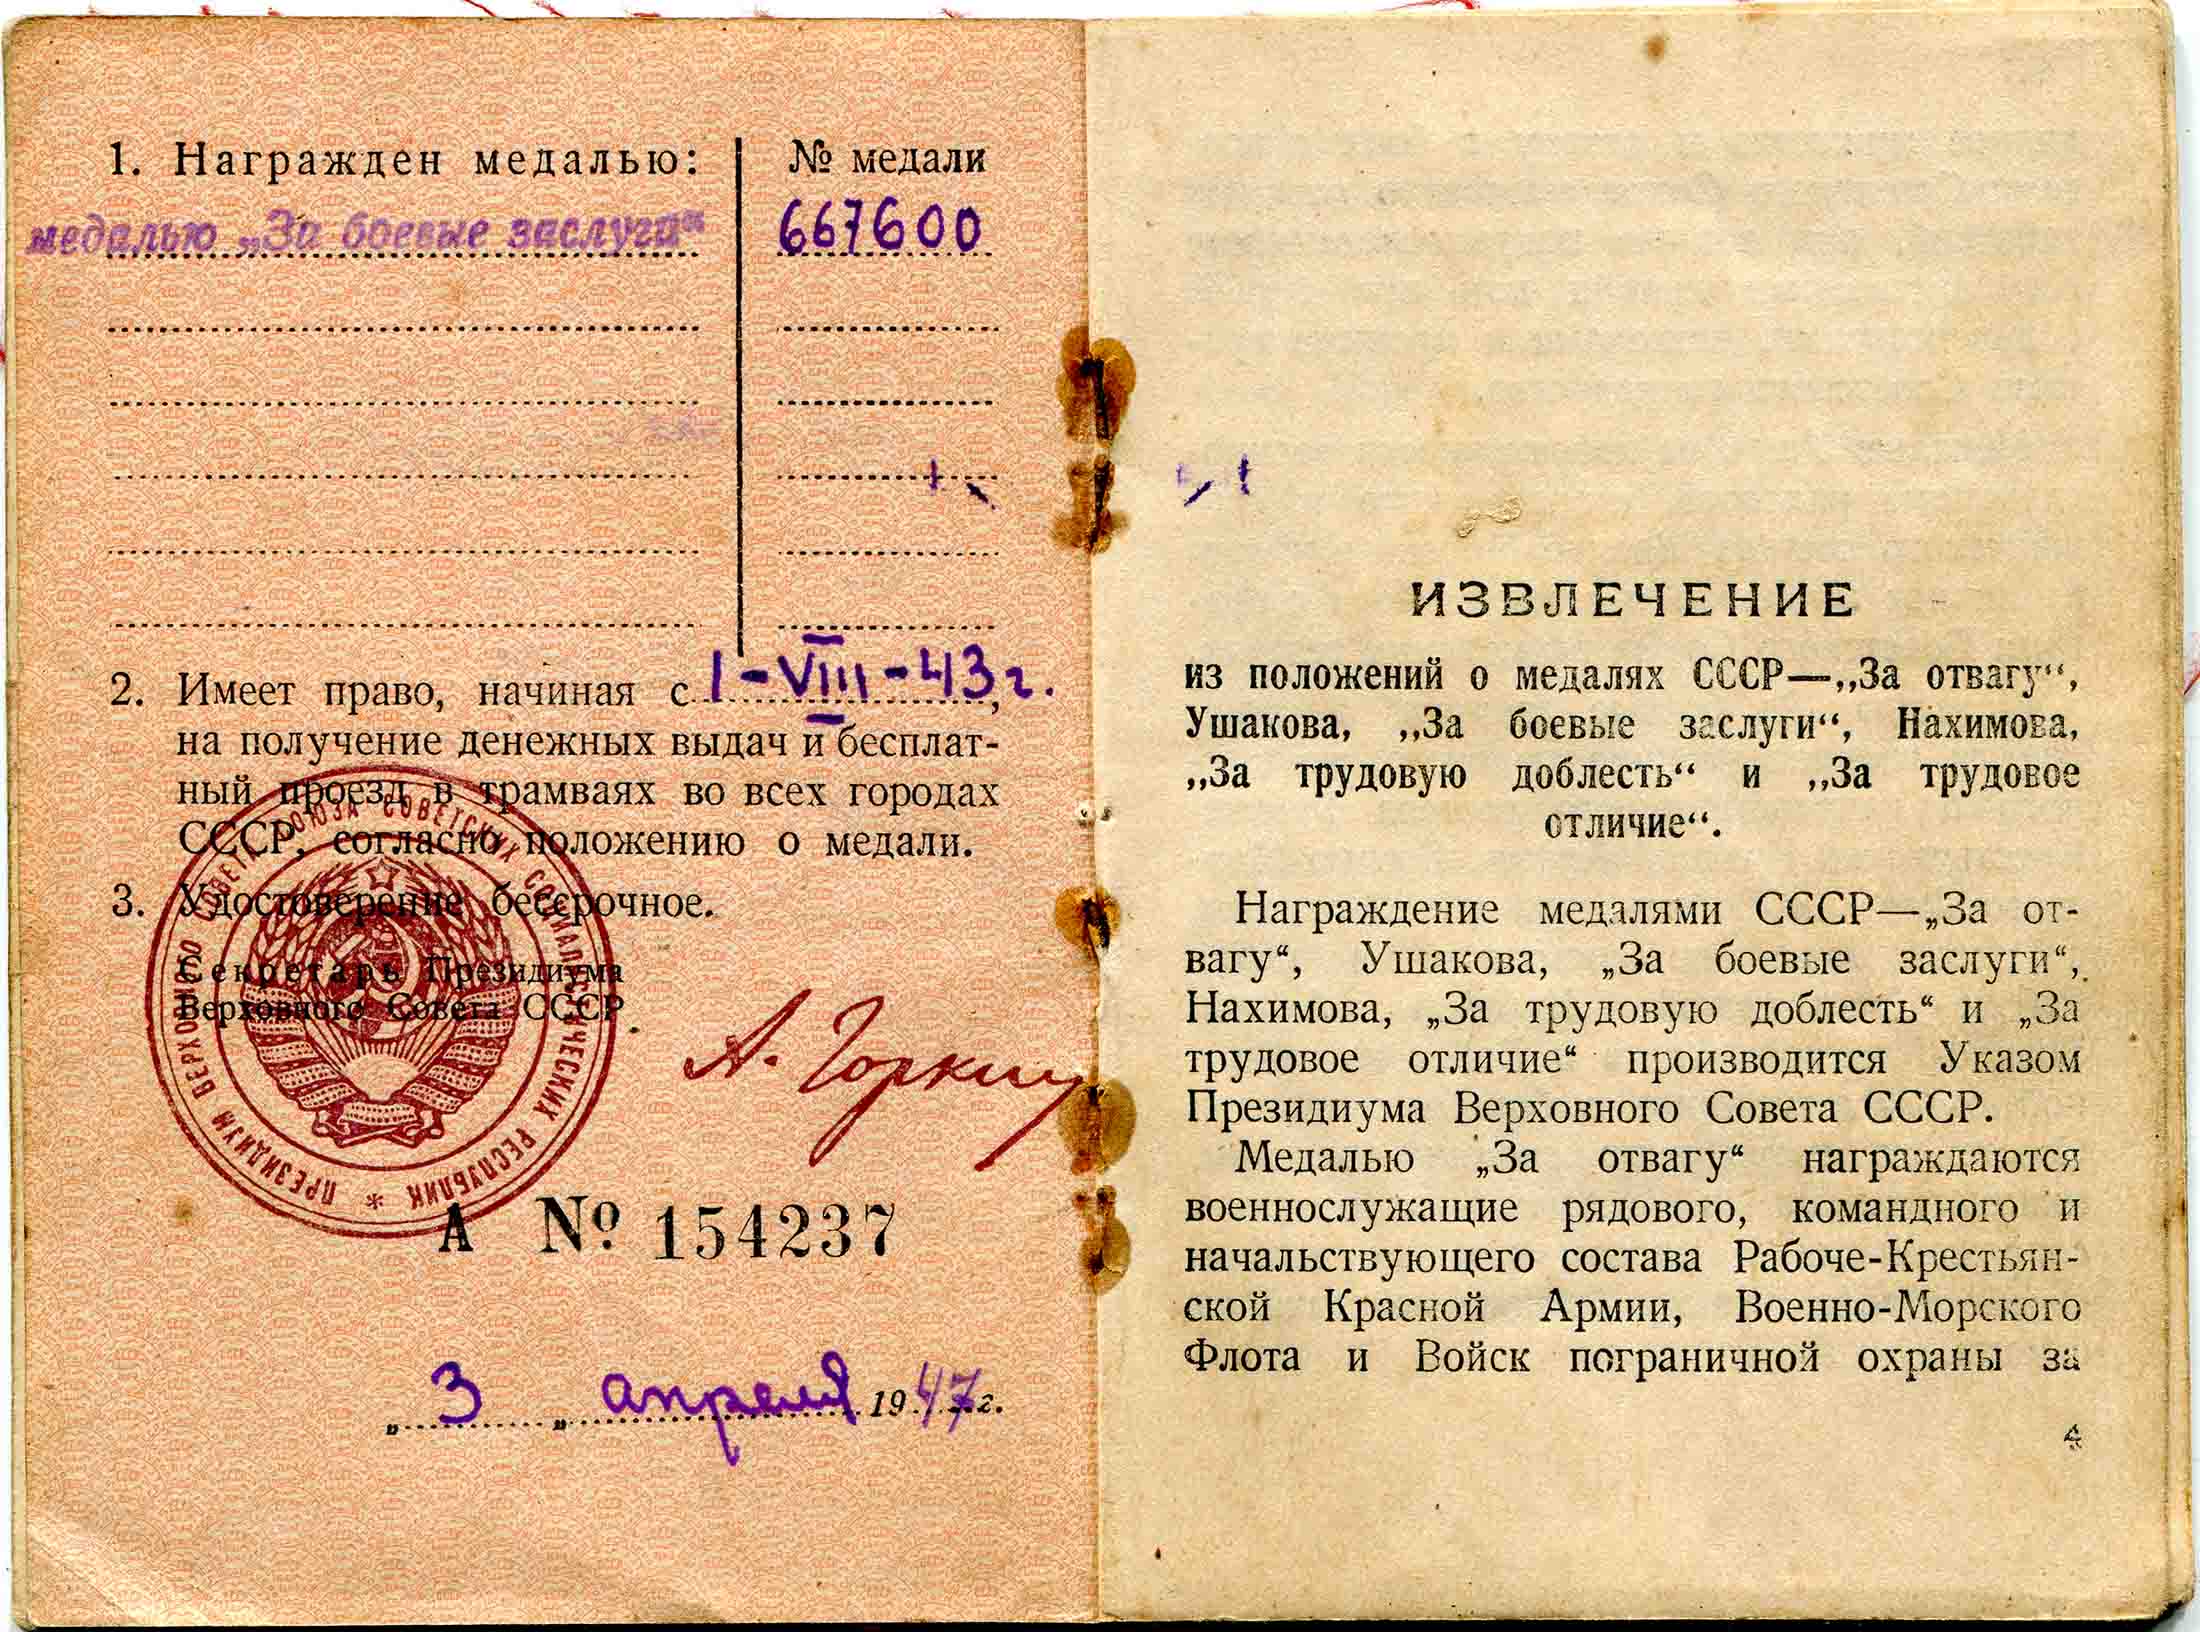 1. Награжден медалью:
№ медали
медалью „За боевые заслуги“
667600
2. Имеет право, начиная с 1-VIII-43 г.,
на получение денежных выдач и бесплат-
ный проезд в трамваях во всех городах
СССР, согласно положению о медали.
3. Удостоверение бессрочное.
Секретарь Президиума
Верховного Совета СССР
А. Горкин
ПРЕЗИДИУМ ВЕРХОВНОГО СОВЕТА СОЮЗА СОВЕТСКИХ СОЦИАЛИСТИЧЕСКИХ РЕСПУБЛИК *
А № 154237
„3„ апреля 1947 г.
ИЗВЛЕЧЕНИЕ
из положений о медалях СССР—„За отвагу“,
Ушакова, „За боевые заслуги“, Нахимова,
„За трудовую доблесть“ и „За трудовое
отличие“.
Награждение медалями СССР—„За от-
вагу“, Ушакова, „За боевые заслуги“,
Нахимова, „За трудовую доблесть“ и „За
трудовое отличие“ производится Указом
Президиума Верховного Совета СССР.
Медалью „За отвагу“ награждаются
военнослужащие рядового, командного и
начальствующего состава Рабоче-Крестьян-
ской Красной Армии, Военно-Морского
Флота и Войск пограничной охраны за
4